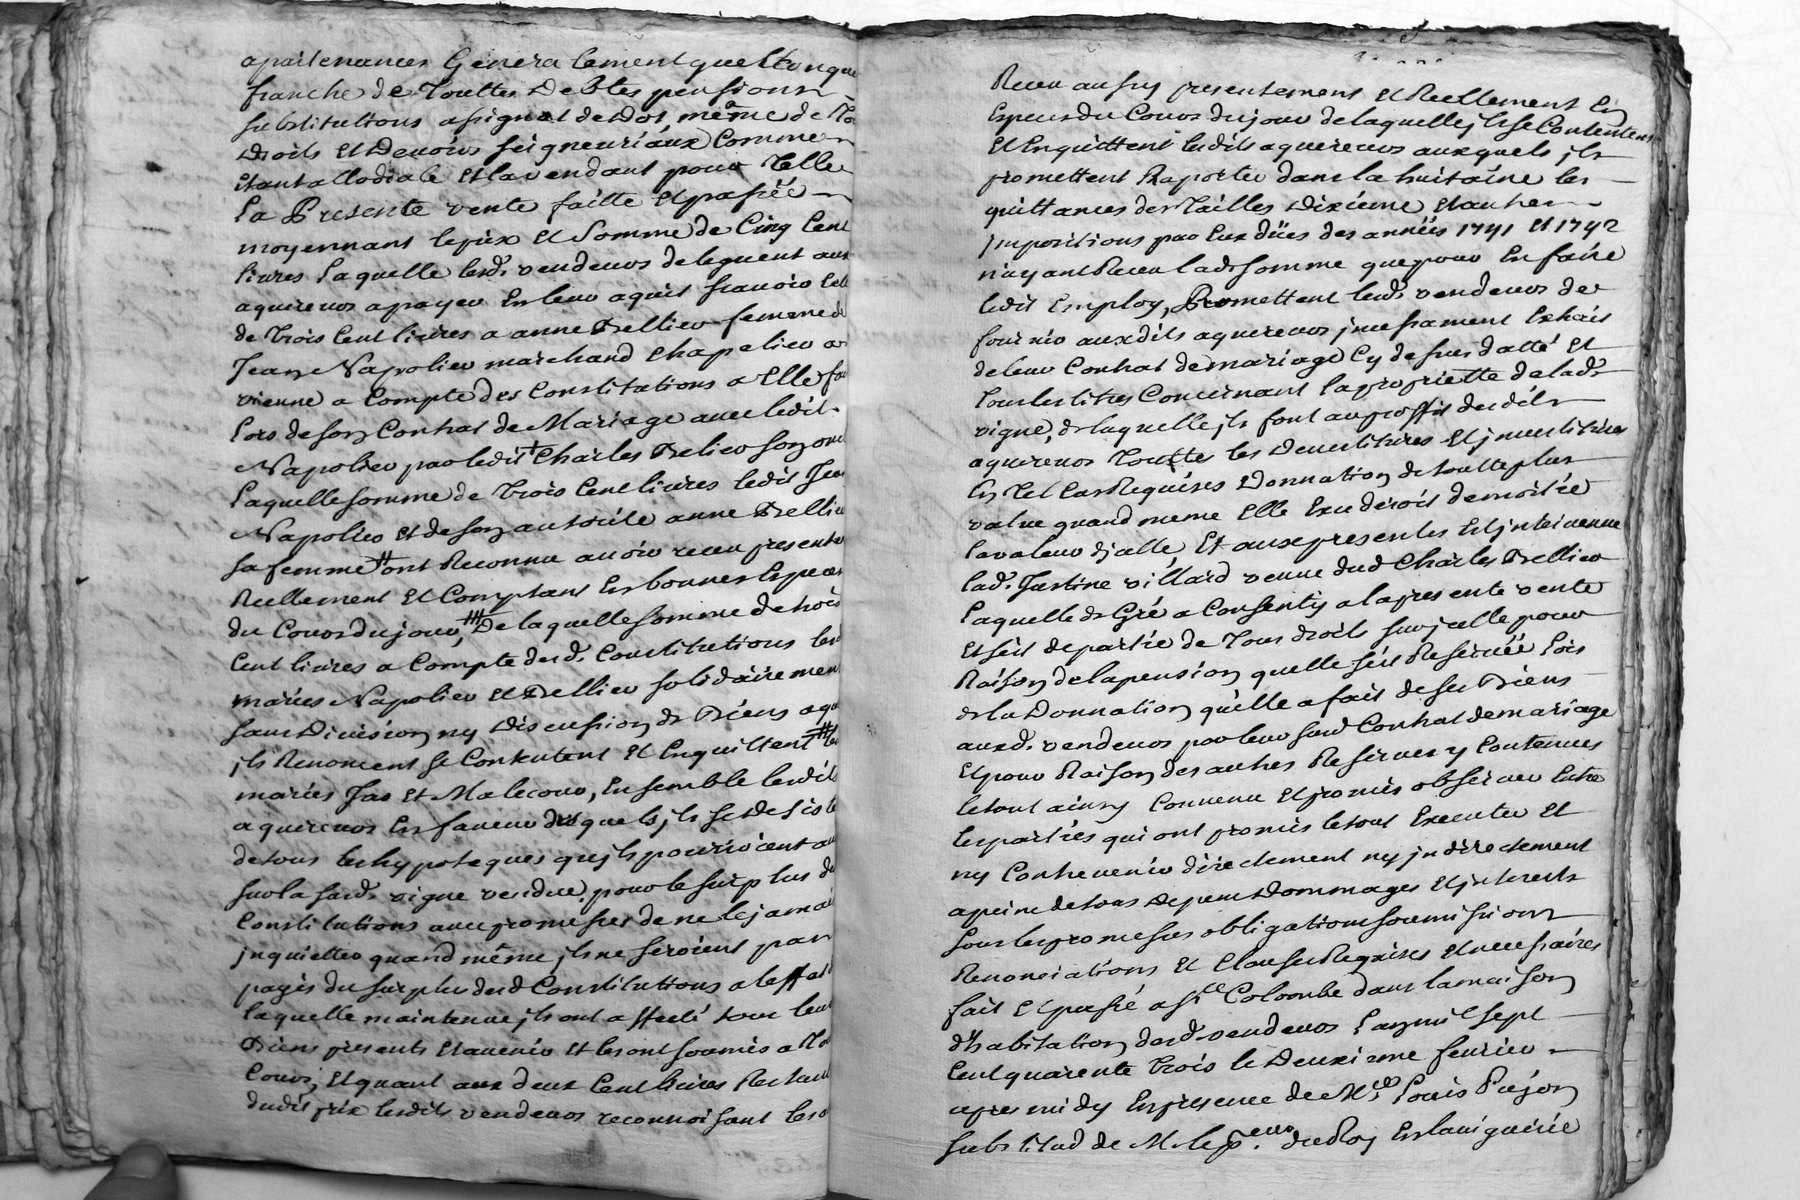 apartenances Generalement quelconque
franche de Touttes Debtes pensions
substitutions assignat de dot même de To
Droits Et Devoirs seigneuriáux Comme
étant allodiale Et la vendant pour Telle
La Presente vente faitte Et passéé
moyennant le prix Et Somme de Cinq Cent
livres Laquelle lesd. vendeurs deleguent aux
aquereurs a payer En leur aquit scavoir celle
de trois Cent livres a anne Bellier femme de
Jean Napolier marchand Chapelier a
vienne a Compte des Constitutions a Elle fa
Lors de son Contrat de Mariage avec ledit
Napolier par ledit + Charles Bellier son
Laquelle somme de trois Cent livres ledit Jean
Napolier Et de son autorité anne Bellier
sa femme ont Reconnu avoir receu presente
Reellement Et Comptant En bonnes Especes
du Cours du jour, De laquelle somme de trois
Cent livres a Compte desd. Constitutions les
mariés Napolier Et Bellier solidairement
sans Division ny Discussion de Biens aqu
ils Renoncent se Contentent Et Enquittent les
mariés Jas Et Malecour, Ensemble lesdits
aquereurs En faveur desquels ils se Desiste
de tous les hypoteques qu'ils pourroient av
sur la susd. vigne vendue, pour le surplus de
Constitutions avec promesses de ne les jamai
jnquietter quand même ils ne seroient pas
payés du surplus desd Constituttions a leffet
laquelle maintenue ils ont affecté tous leur
Biens presents Et avenir Et les ont soumis a To
Cours, Et quant aux deux Cent livres Restant
dudit prix lesdits vendeurs reconnoissant les a
Receu aussy presentement Et Reellement En
Especes du Cours du jour de laquelle ils se Contentent
Et Enquittent lesdits aquereurs auxquels ils
promettent Raporter dans la huitaine les
quittances des Tailles Dixiéme Et autres
jmpositions par Eux düës des années 1741 Et 1742
n'ayant Receu lad. somme que pour En faire
ledit Employ, Promettent lesd. vendeurs de
fournir auxdits aquereurs jncessament Extrait
de leur Contrat de mariage Cy dessus datté Et
tous les titres Concernant la propriette de lad.
vigne, de laquelle ils font au proffit desdits
aquereurs Toutte les Devestitures Et jnvestitures
En Tel Cas Requises Donnation de toutte plus
value quand meme Elle Excederoit de moitiée
la valeur d'jcelle, Et aux presentes Est jntervenue
lad. Justine villard veuve dud Charles Bellier
Laquelle de Gré a Consenty a la presente vente
Et s'est departie de Tous droits sur jcelle pour
Raison de la pension quelle s'est Reservéé Lors
de la Donnation qu'elle a fait de ses Biens
auxd. vendeurs par leur susd Contrat de mariage
Et pour Raison des autres Reserves y Contenues
le tout ainsy Convenu Et promis observer Entre
les parties qui ont promis le tout Executer Et
ny Contrevenir directement ny jndirectement
a peine de tous Depens Dommages Et jnterests
sous les promesses obligations soumissions
Renonciations Et Clauses Requises Et necessaires
fait Et passé a Ste Colombe dans la maison
d'habitation desd. vendeurs L'an mil sept
Cent quarente trois le Deuxieme fevrier
apres midy En presence de Me Louis Pujon
substitud de M le pr.eur du Roy En la viguerie